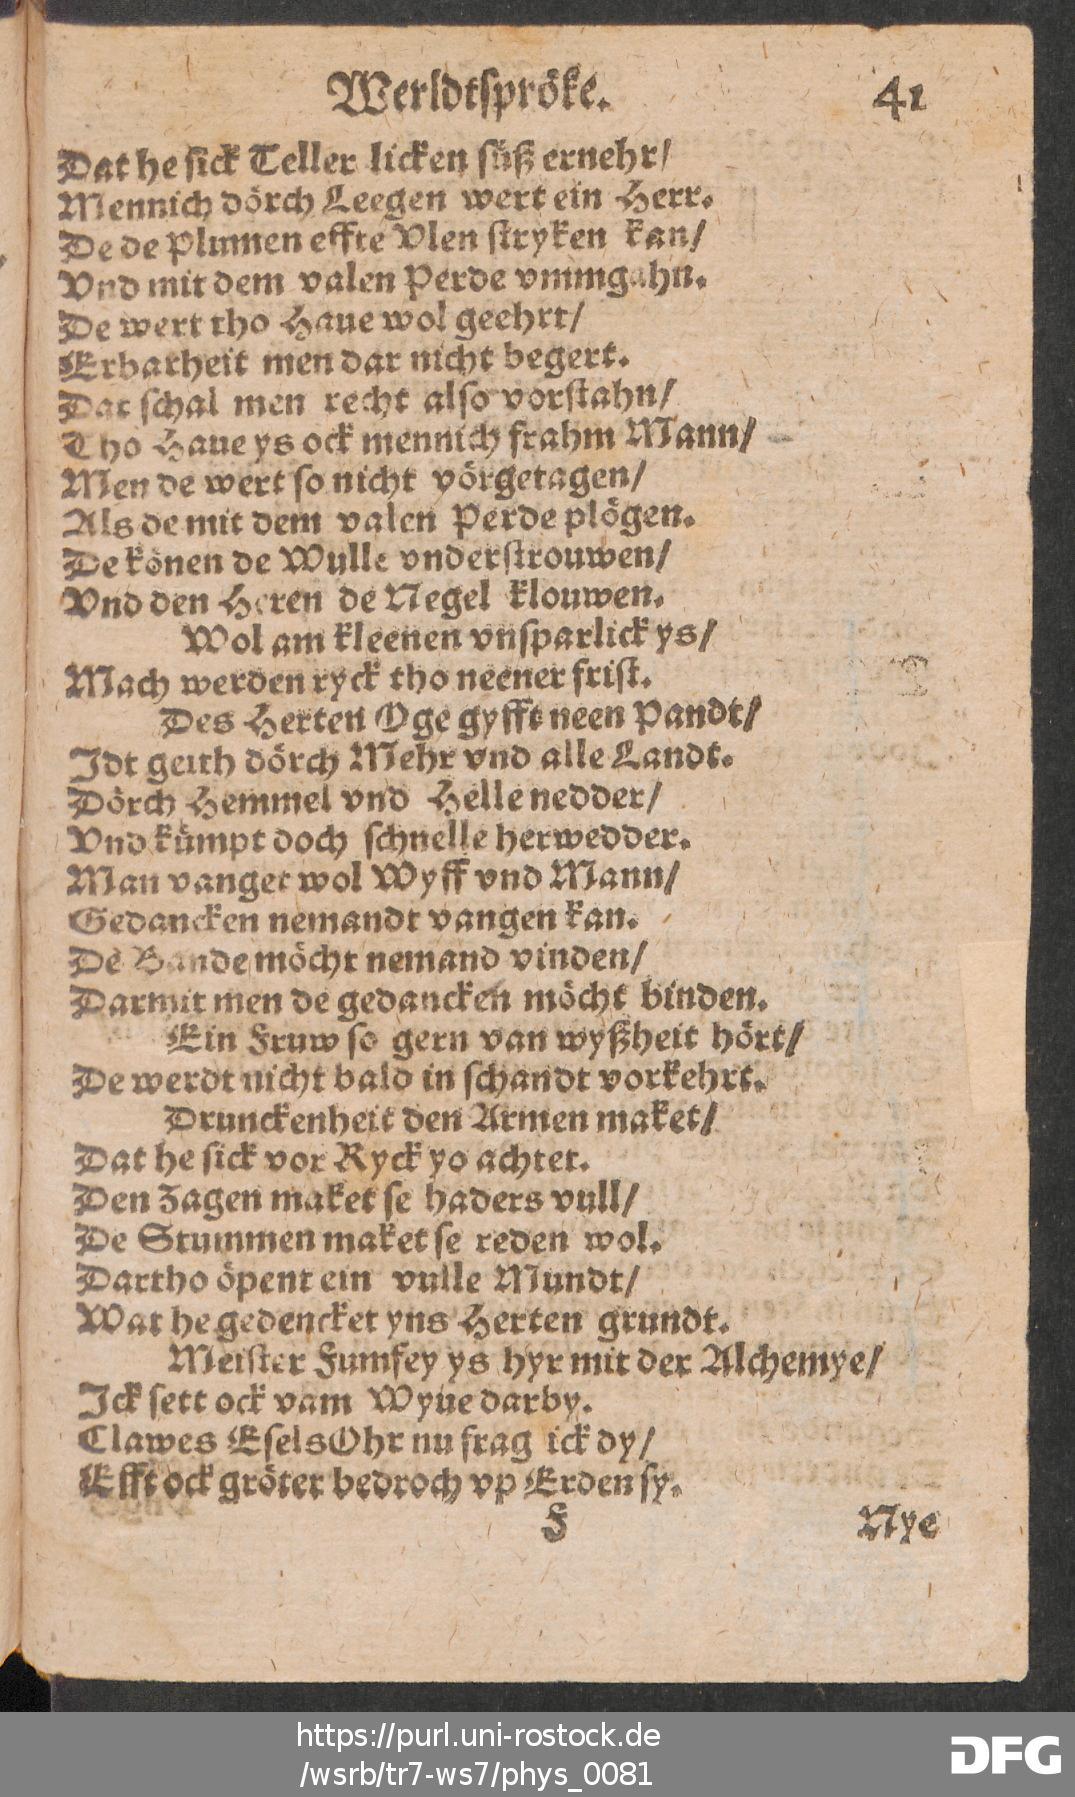 Werldtspröke. 41
Dat he sick Teller licken süß ernehr/
Mennich dörch Leegen wert ein Herr.
De de Plumen effte Vlen stryken kan/
Vnd mit dem valen Perde vmmgahn.
De wert tho Haue wol geehrt/
Erbarheit men dar nicht begert.
Dat schal men recht also vorstahn/
Tho Haue ys ock mennich frahm Mann/
Men de wert so nicht vörgetagen/
Als de mit dem valen Perde plögen.
De könen de Wulle vnderstrouwen/
Vnd den Heren de Negel klouwen.
Wol am kleenen vnsparlick ys/
Mach werden ryck tho neener frist.
Des Herten Oge gyfft neen Pandt/
Idt geith dörch Mehr vnd alle Landt.
Dörch Hemmel vnd Helle nedder/
Vnd kümpt doch schnelle herwedder.
Man vanget wol Wyff vnd Mann/
Gedancken nemandt vangen kan.
De Bande möcht nemand vinden/
Darmit men de gedancken möcht binden.
Ein Fruw so gern van wyßheit hört/
De werdt nicht bald in schandt vorkehrt.
Drunckenheit den Armen maket/
Dat he sick vor Ryck yo achtet.
Den Zagen maket se haders vull/
De Stummen maket se reden wol.
Dartho öpent ein vulle Mundt/
Wat he gedencket yns Herten grundt.
Meister Fumfey ys hyr mit der Alchemye/
Ick sett ock vam Wyue darby.
Clawes Esels Ohr nu frag ick dy/
Efft ock gröter bedroch vp Erden sy.
F Nye
https://purl.uni-rostock.de
/wsrb/tr7-ws7/phys_0081
DFG